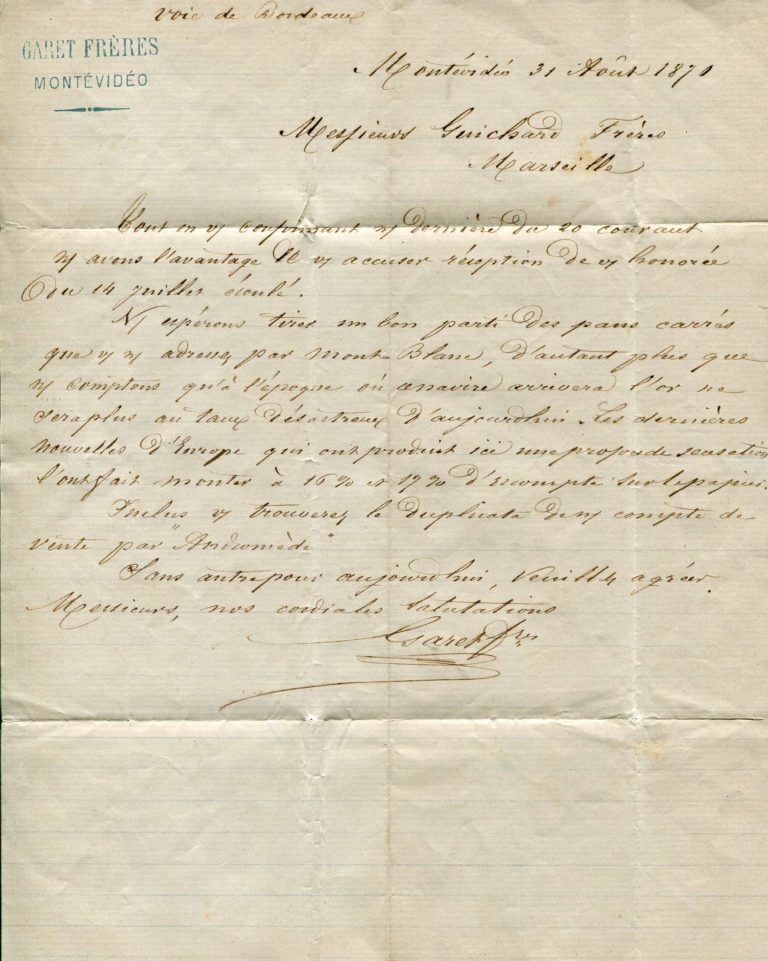 voie de Bordeaux
GARET FRÈRES
MONTÉVIDÉO
Montévidéo 31 Août 1871
Messieurs Guichard Frères
Marseille
Tout en vs confirmant ns dernière du 20 courant
ns avons l'avantage de vs accuser réception de vs honorée
du 14 juillet écoulé.
Ns espérons tirer un bon parti des pans carrés
que vs ns adressez par Mont Blanc, d'autant plus que
ns comptons qu'à l'époque où ce navire arrivera l'or ne
sera plus au taux désastreux d'aujourdhui. Les dernières
nouvelles d'Europe qui ont produit ici une profonde sensation
l'ont fait monter à 16% et 17% d'Escompte sur le papier.
Inclus vs trouverez le duplicata de ns compte de
vente par "Andromède"
Sans autre pour aujourdhui, Veuillez agréer
Messieurs, nos cordiales salutations
Garet Fres